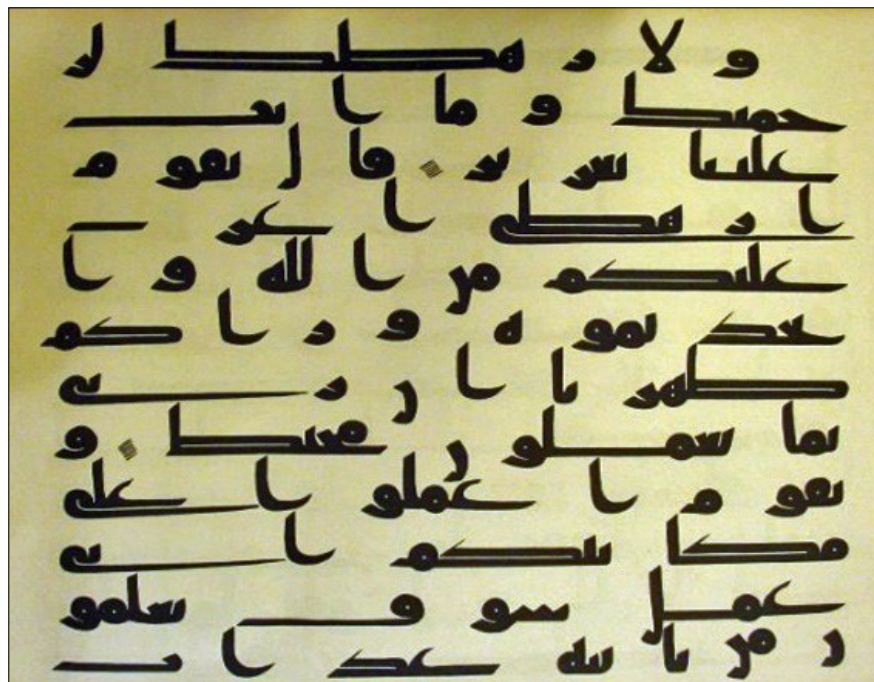 و لا ر هطك لر
جمنك و ما ا نت
علينا بعز يز قا ل يقو م
ا ر هطي ا عز
عليكم من الله و ا
تخذ تمو ه و ر ا كم
ظهر يا ا ن ر بي
بما تعملو ن محيط و
يقو م ا عملو ا علي
مكا نتكم ا ني
عمل سو ف تعلمو
ن من يا تيه عذ ا ب